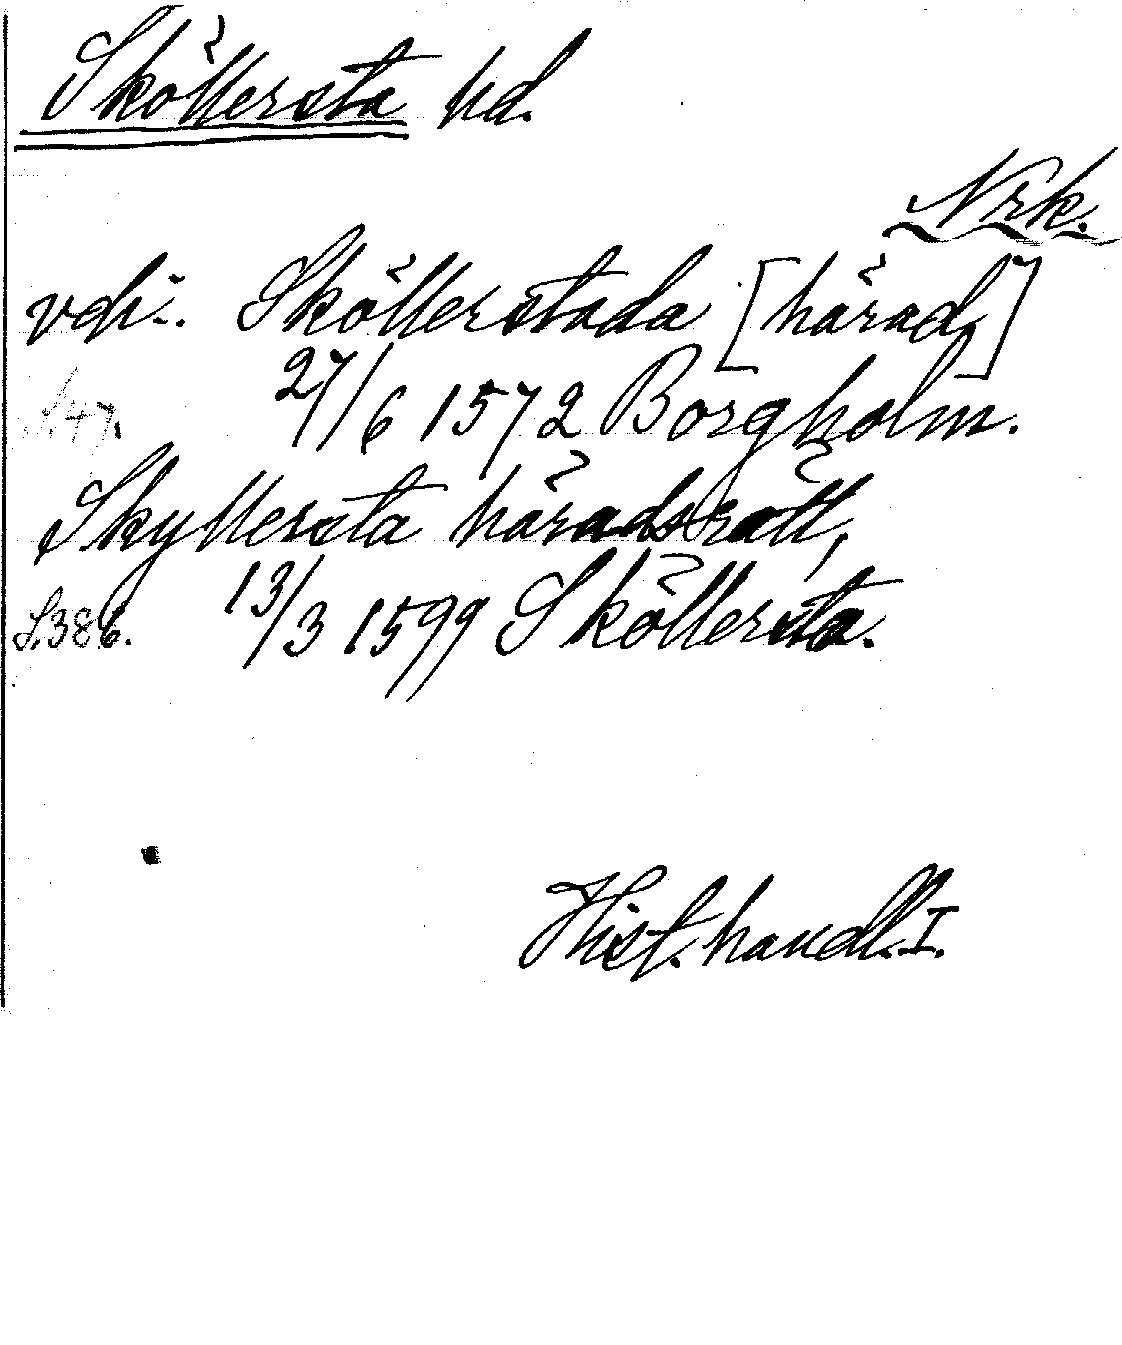 Sköllersta hd.
Nrk.
vdi Sköllerstada [härad,]
S. 47. 27/6 1572 Borgholm.
Skyllersta häradsrätt,
S. 386. 13/3 1599 Sköllersta.
Hist. handl. I.